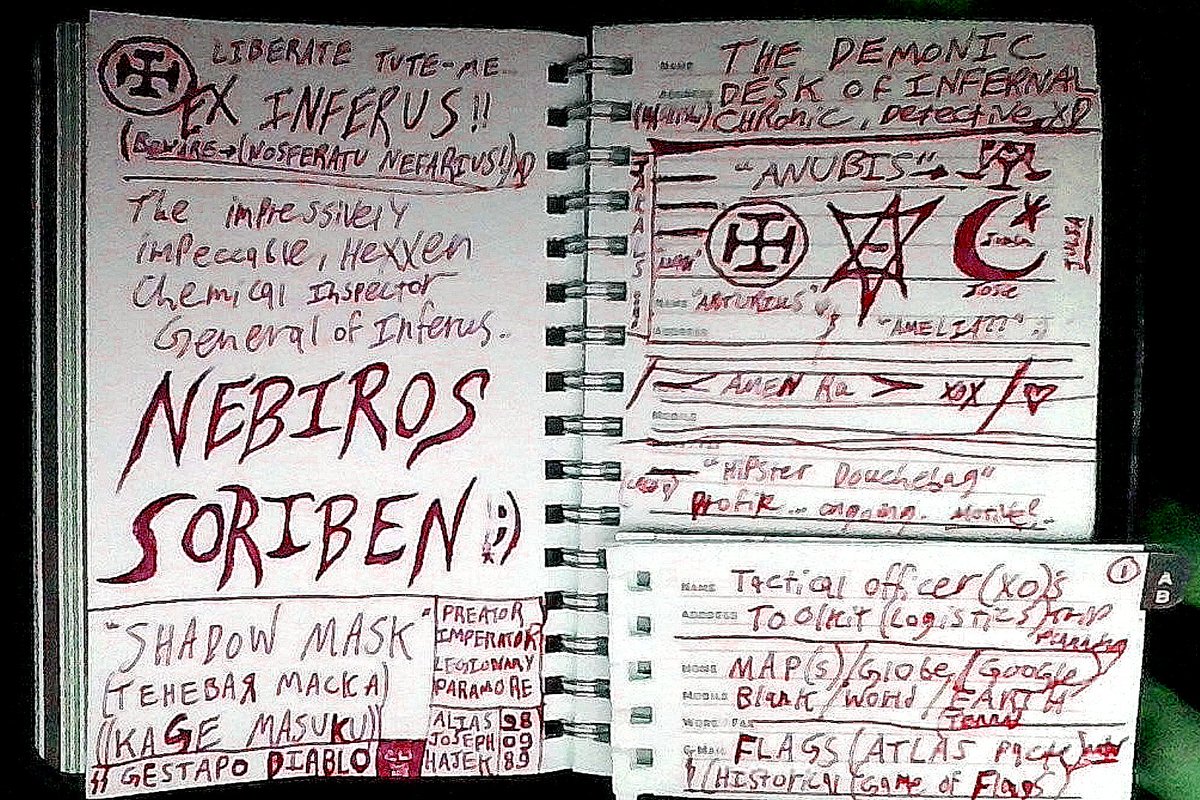 LIBERATE TUTE-ME
EX INFERUS!!
(BEWARE→(NOSFERATU NEFARIUS!)XD
The impressively
impeccable, Hexxen
Chemical Inspector
General of Inferus.
NEBIROS
SORIBEN ;)
"SHADOW MASK"
(TEHEBAЯ MACKA)
((KAGE MASUKU))
GESTAPO DIABLO
PREATOR
IMPERATOR
LEGIONARY
PARAMORE
ALIAS 98
JOSEPH 09
HAJEK 89
NAME THE DEMONIC
ADDRESS DESK OF INFERNAL
CHRONIC, Detective XD
"ANUBIS"→
JOSE
JULSA
NAME "ARTURIUS"
ADDRESS "AMELIA???"
AMEN Ra XOX
MOBILE
"HIPSTER Douchebag"
Profile... ongoing. Motive?..
1
A
B
NAME Tactical officer(XO)'s
ADDRESS TOOLKIT (LOGISTICS) Trip
Planning
HOME MAP(s)/Globe/Google
MOBILE Blank/World/EARTH
WORK/FAX (Terra)
E-MAIL FLAGS (ATLAS
(HISTORICAL (Game of Flags)